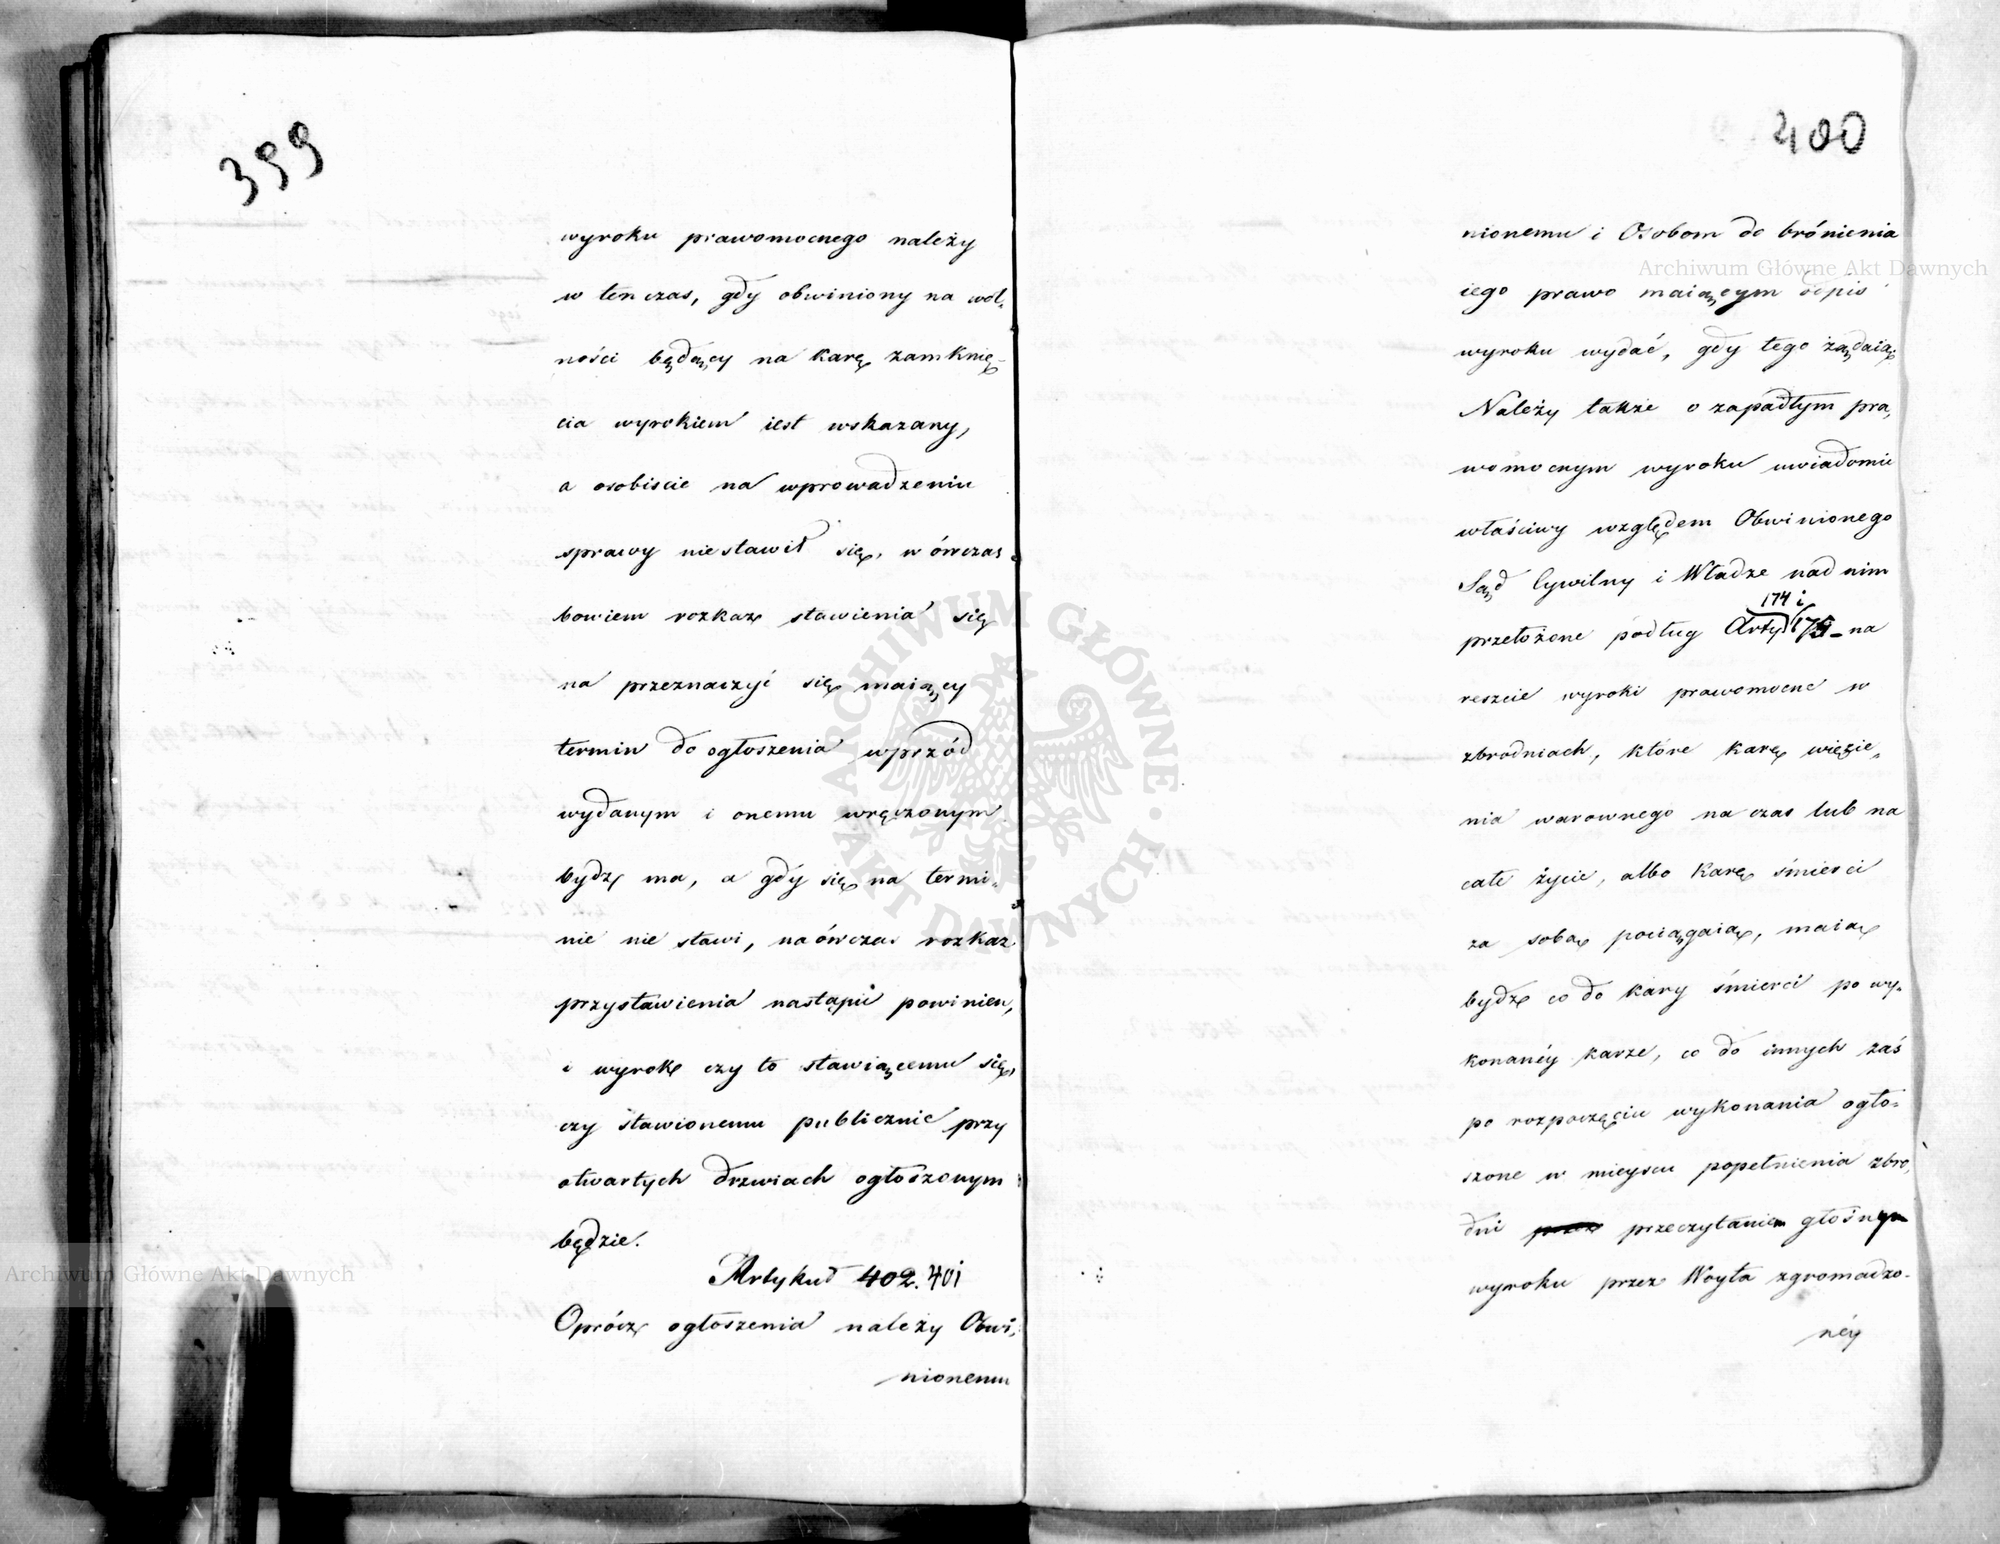 399
wyroku prawomocnego należy
w ten czas, gdy obwiniony na wol-
ności będący na karę zamknię-
cia wyrokiem iest wskazany,
a osobiście na wprowadzeniu
sprawy nie stawił się, w ówczas
bowiem rozkaz stawienia się
na przeznaczyć się maiący
termin do ogłoszenia wprzód
wydanym i onemu wręczonym
bydź ma, a gdy się na termi-
nie nie stawi, na ówczas rozkaz
przystawienia nastąpić powinien,
i wyrok czy to stawiącemu się,
czy stawionemu publicznie przy
otwartych drzwiach ogłoszonym
będzie.
Artykuł 402. 401
Oprócz ogłoszenia należy Obwi-
nionemu
400
nionemu i Osobom do brónienia
iego prawo maiącym odpis
wyroku wydać, gdy tego żądaią.
Należy także o zapadłym pra-
womocnym wyroku uwiadomić
właściwy względem Obwinionego
Sąd Cywilny i Władze nad nim
174 i
przełożone podług Arty 175 na
reszcie wyroki prawomocne w
zbrodniach, które karę więzie-
nia warownego na czas lub na
całe życie, albo karę śmierci
za sobą pociągaią, maią
bydź co do kary śmierci po wy-
konanéy karze, co do innych zaś
po rozpoczęciu wykonania ogło-
szone w mieyscu popełnienia zbro-
dni przez przeczytanie głośnym
wyroku przez Woyta zgromadzo-
néy
Archiwum Główne Akt Dawnych
Archiwum Główne Akt Dawnych
ARCHIWUM GŁÓWNE AKT DAWNYCH